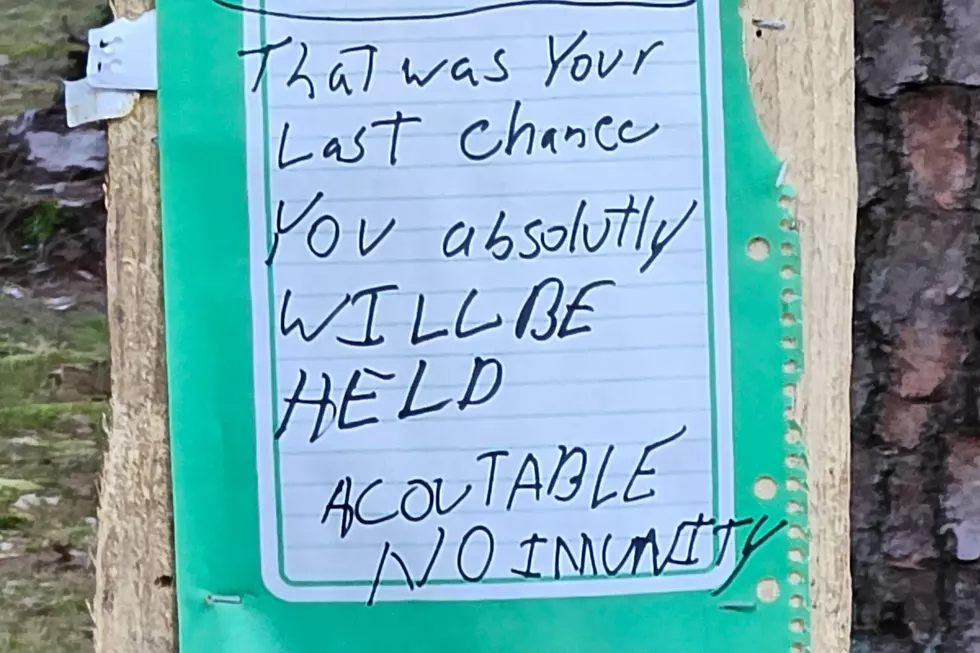 That was Your
Last chance
You absolutly
WILL BE
HELD
ACOUTABLE
NO IMUNITY